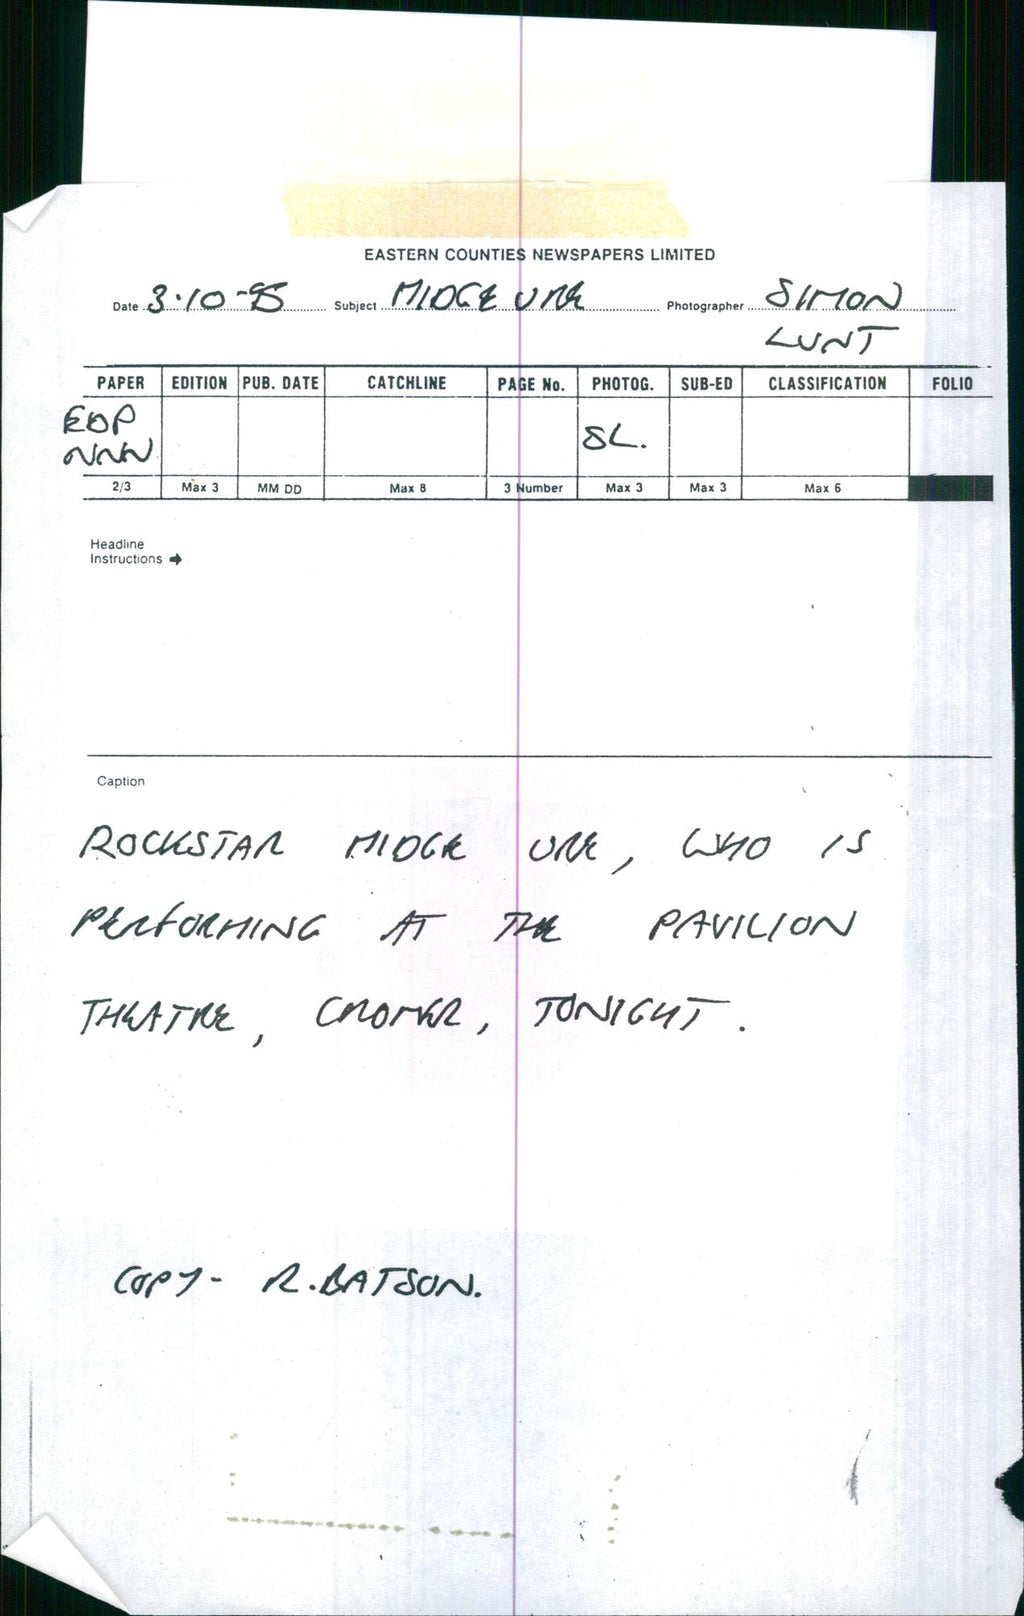 EASTERN COUNTIES NEWSPAPERS LIMITED
Date 3·10-95 Subject MIDGE URE Photographer SIMON
LUNT
PAPER EDITION PUB. DATE CATCHLINE PAGE No. PHOTOG. SUB-ED CLASSIFICATION FOLIO
EDP
NNN SL.
2/3 Max 3 MM DD Max 8 3 Number Max 3 Max 3 Max 6
Headline
Instructions ➔
Caption
ROCKSTAR MIDGE URE, WHO IS
PERFORMING AT THE PAVILION
THEATRE, CROMER, TONIGHT.
COPY- R.BATSON.